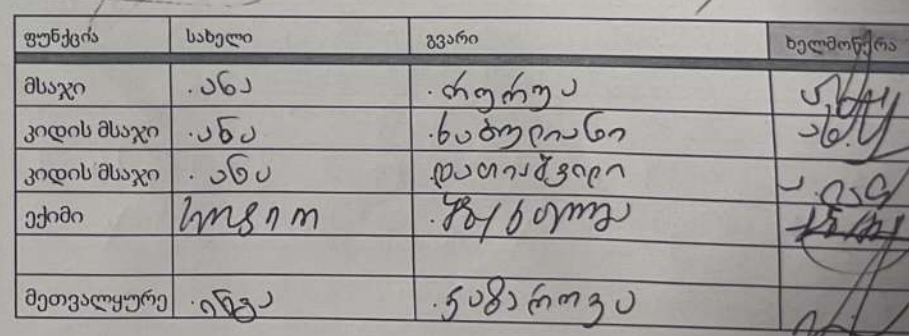 ფუნქცია სახელი გვარი ხელმოწერა
მსაჯი ანა როგორუა
კიდის მსაჯი ანა ხაბულიანი
კიდის მსაჯი ანა დათიაშვილი
ექიმი სოფიო
მეთვალყურე ინგა ნაზაროვა